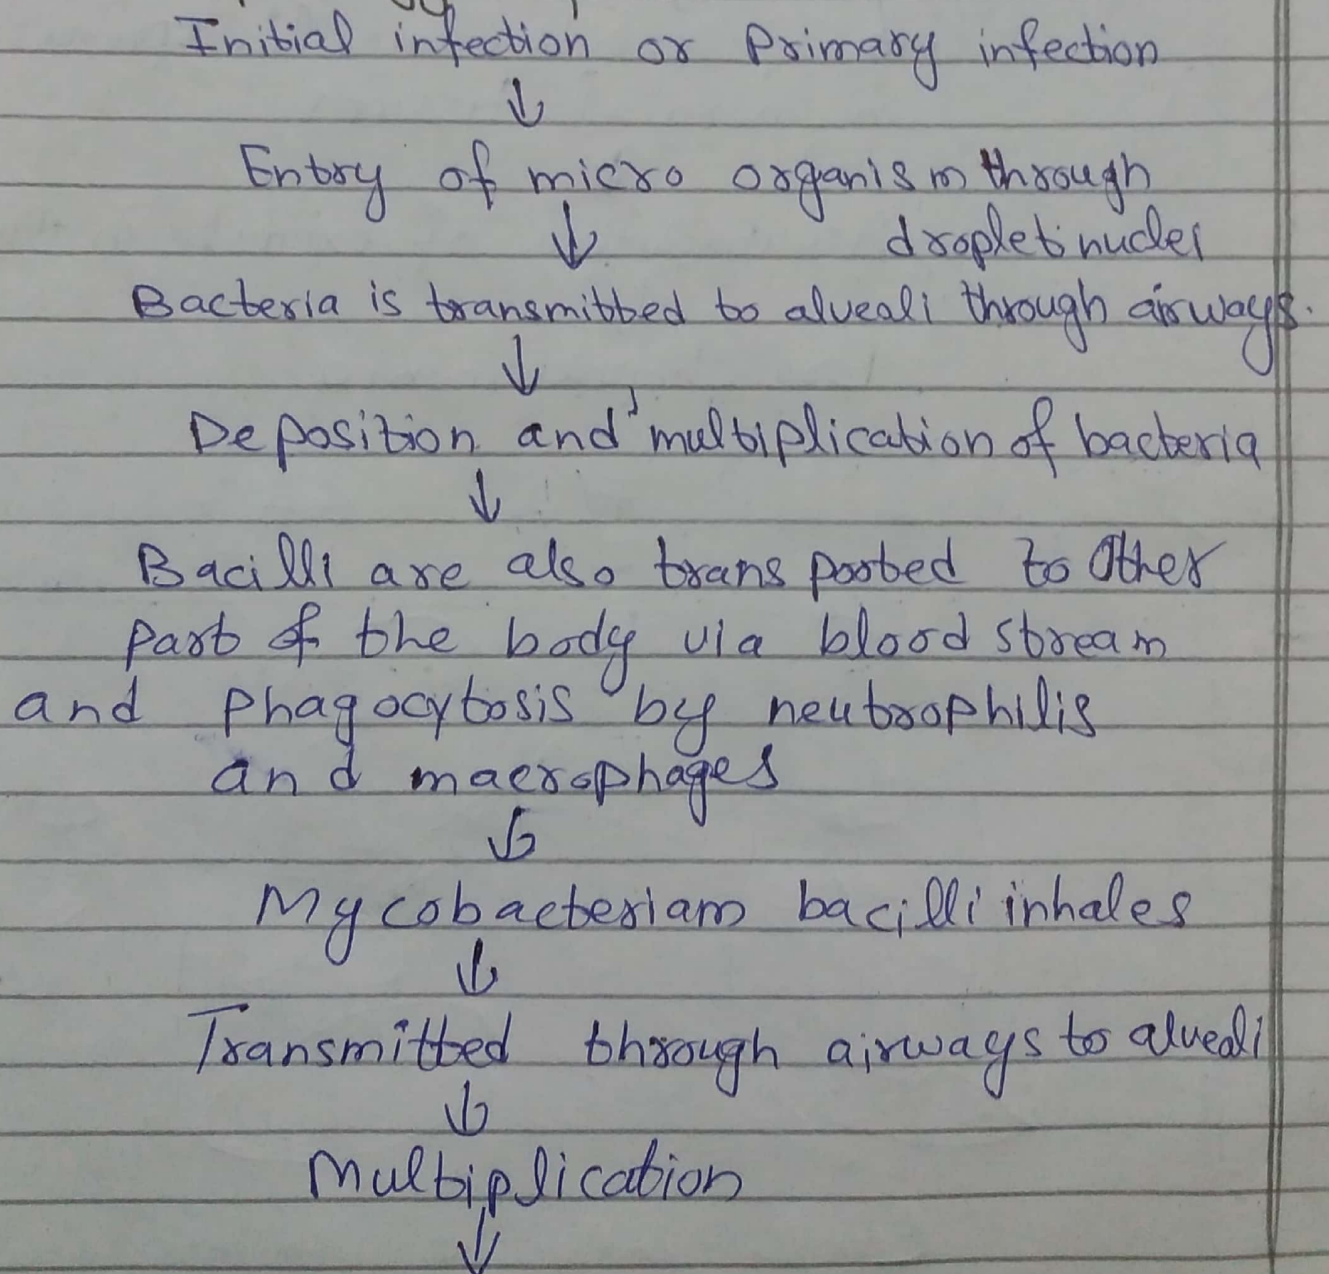 Initial infection or Primary infection
↓
Entry of micro organism through
droplet nuclei
↓
Bacteria is transmitted to alveali through airways.
↓
Deposition and multiplication of bacteria
↓
Bacilli are also transported to Other
part of the body via blood stream
and phagocytosis by neutrophilis
and macrophages
↓
Mycobacteriam bacilli inhales
↓
Transmitted through airways to alveali
↓
Multiplication
↓